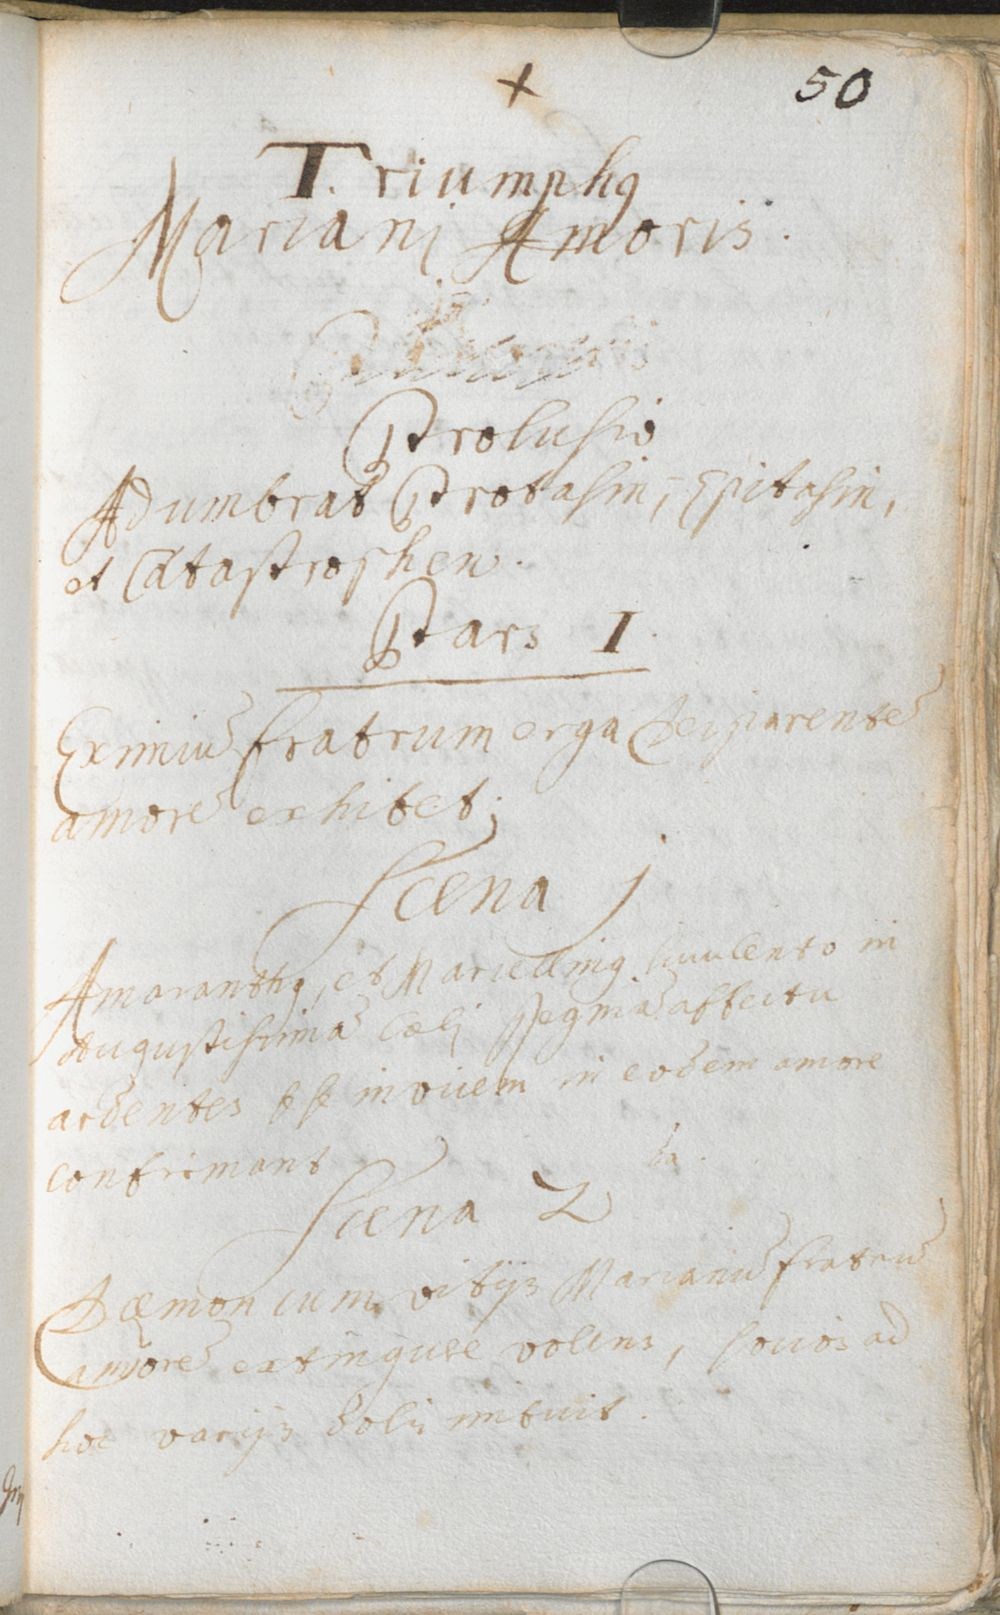 + 50
Triumphꝰ
Mariani Amoris.
Prolusio
Adumbrat Protasin, Epitasin,
et Catastrophen.
Pars I.
Eximiũ fratrum erga Deiparentẽ
amorẽ exhibet;
Scena 1
Amaranthꝰ, et Mariellinꝰ luculento in
Augustissimã Cœli Reginã affectu
ardentes se invicem in eodem amore
confirmant
Scena 2
Dæmon cum vitijs Marianũ fratrũ
amorẽ extinguere volens, socios ad
hoc varijs dolis